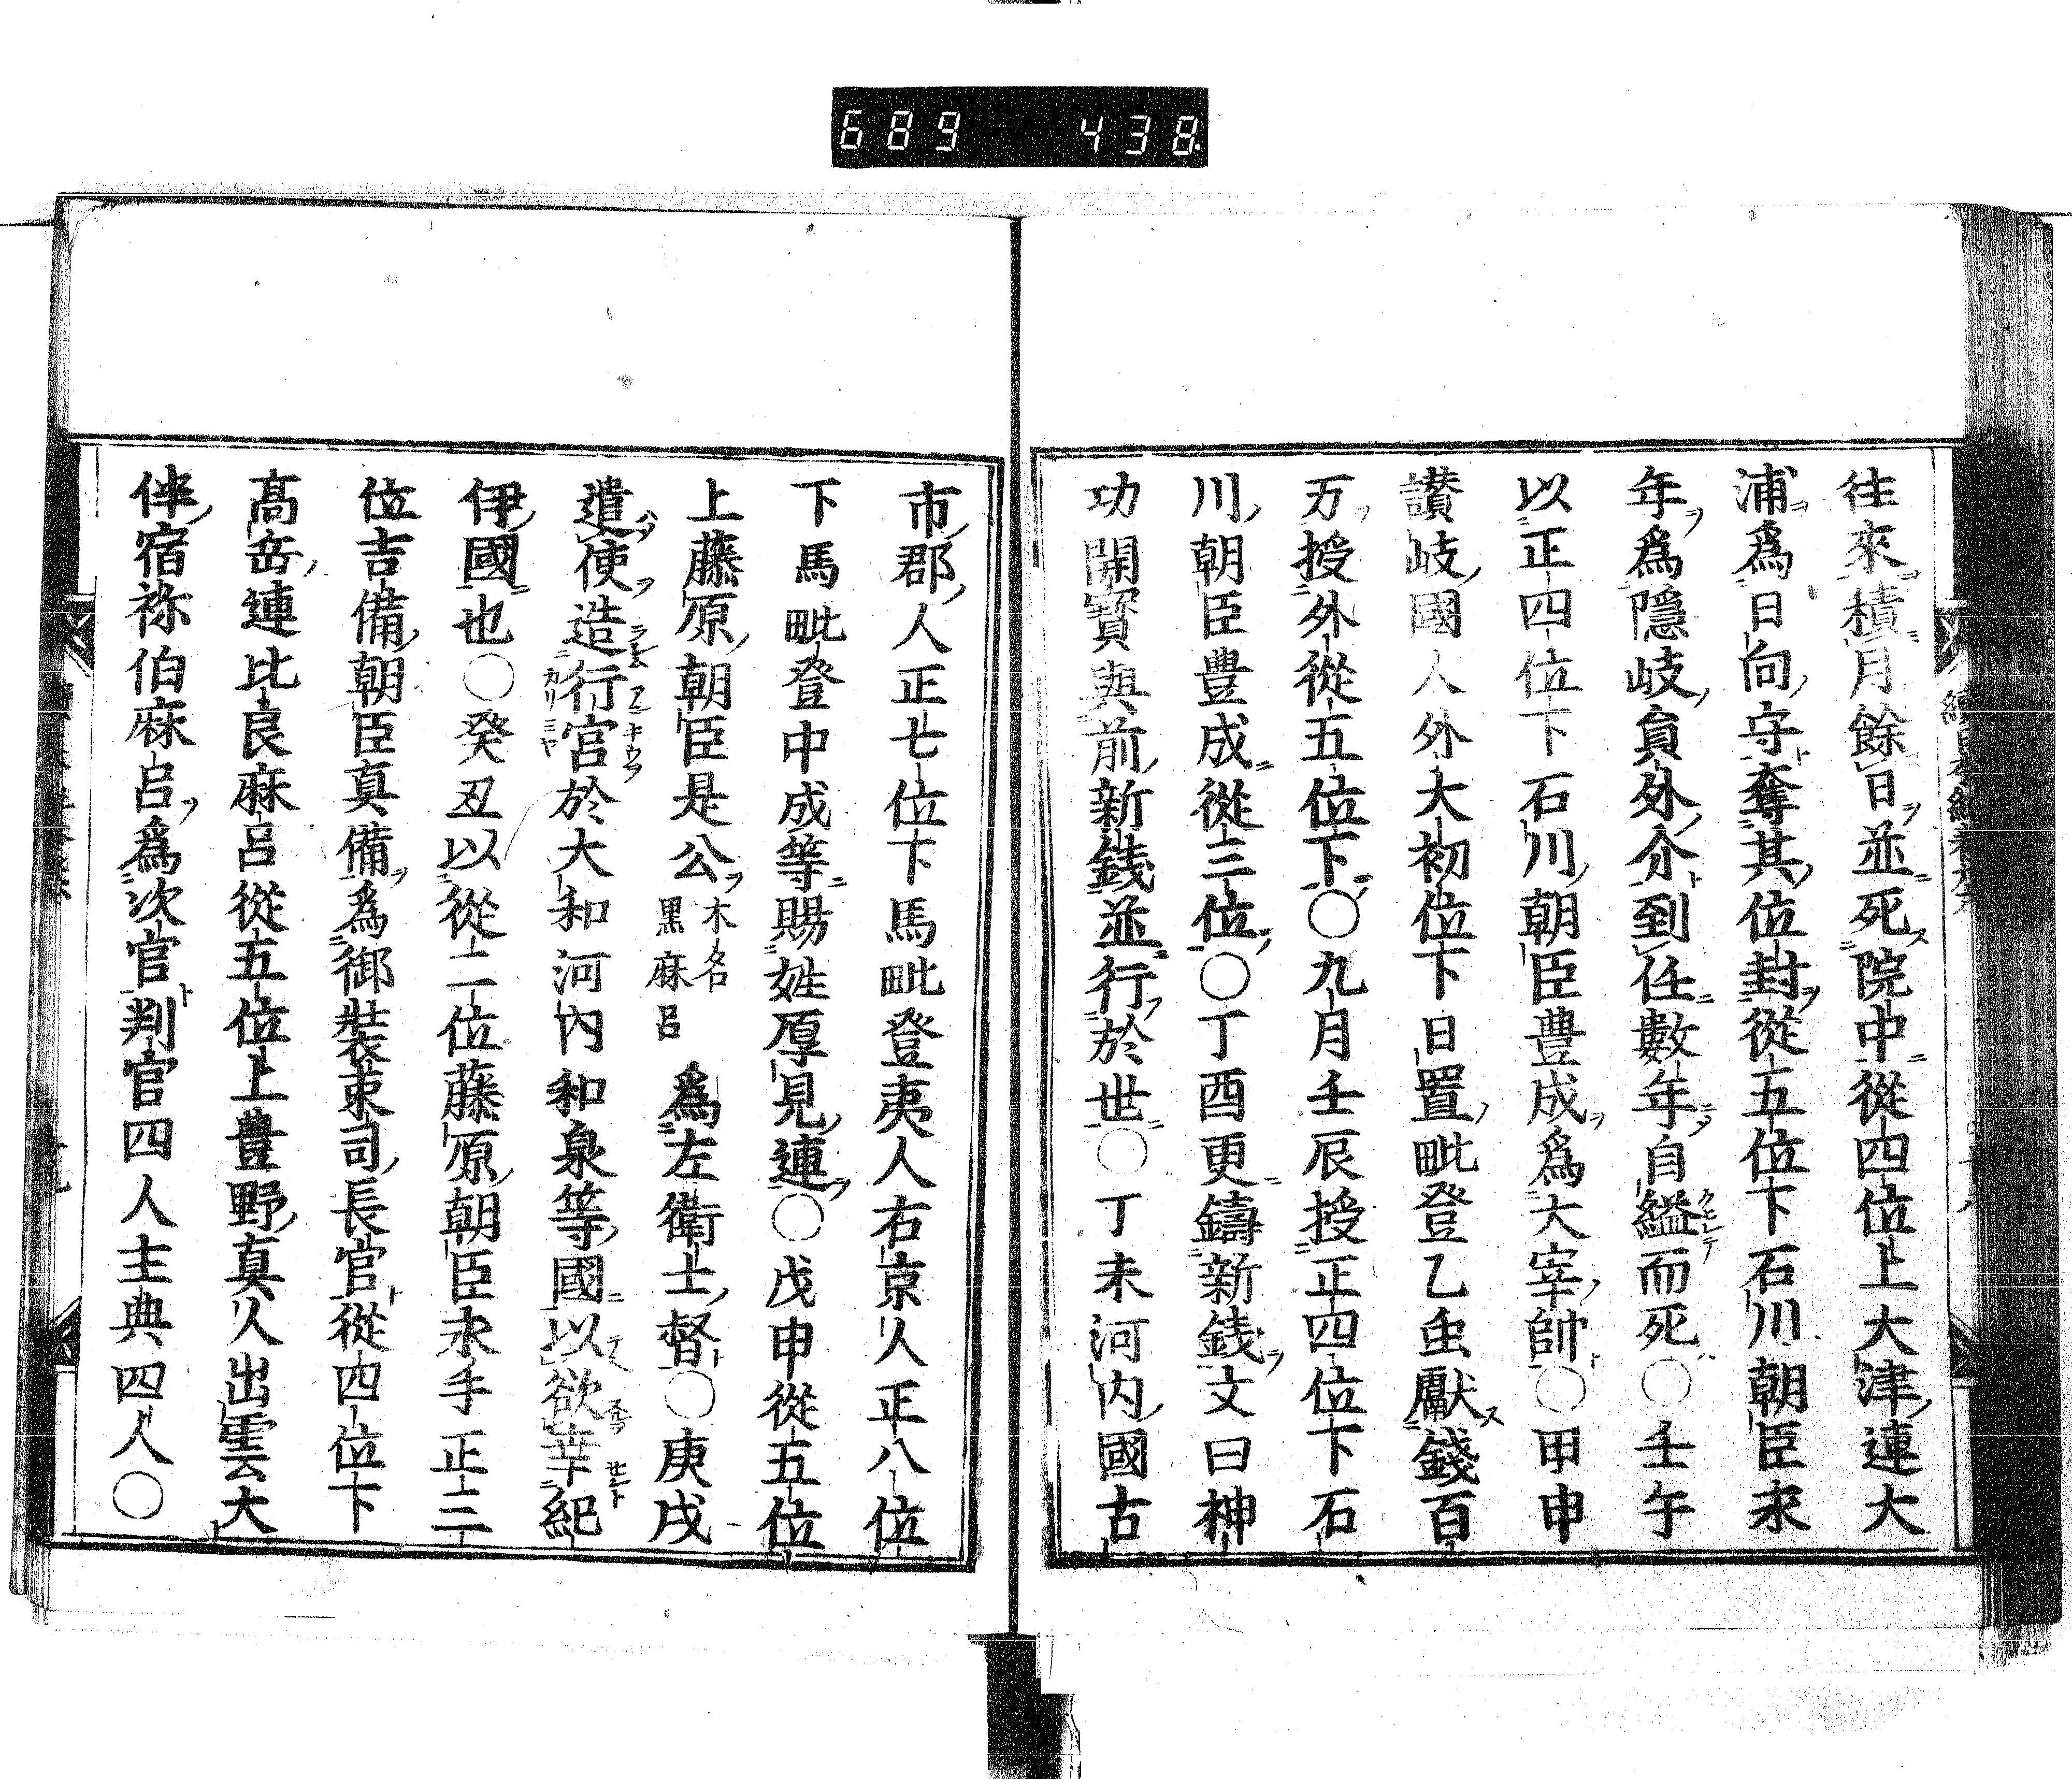 689 438
往來積月餘日並死院中從四位上大津連大
浦爲日向守奪其位封從五位下石川朝臣永
年爲隱岐員外介到任數年自縊而死○壬午
以正四位下石川朝臣豊成爲大宰帥○甲申
讃岐國人外大初位下日置毗登乙虫獻錢百
万授外從五位下○九月壬辰授正四位下石
川朝臣豊成從三位○丁酉更鑄新錢文曰神
功開寳與前新錢並行於世○丁未河内國古
市郡人正七位下馬毗登夷人右京人正八位
下馬毗登中成等賜姓厚見連○戊申從五位
上藤原朝臣是公木名黒麻呂爲左衛士督○庚戌
遣使造行宮於大和河内和泉等國以欲幸紀
伊國也○癸丑以從二位藤原朝臣永手正三
位吉備朝臣真備爲御裝束司長官從四位下
髙岳連比良麻呂從五位上豊野真人出雲大
伴宿祢伯麻呂爲次官判官四人主典四人○